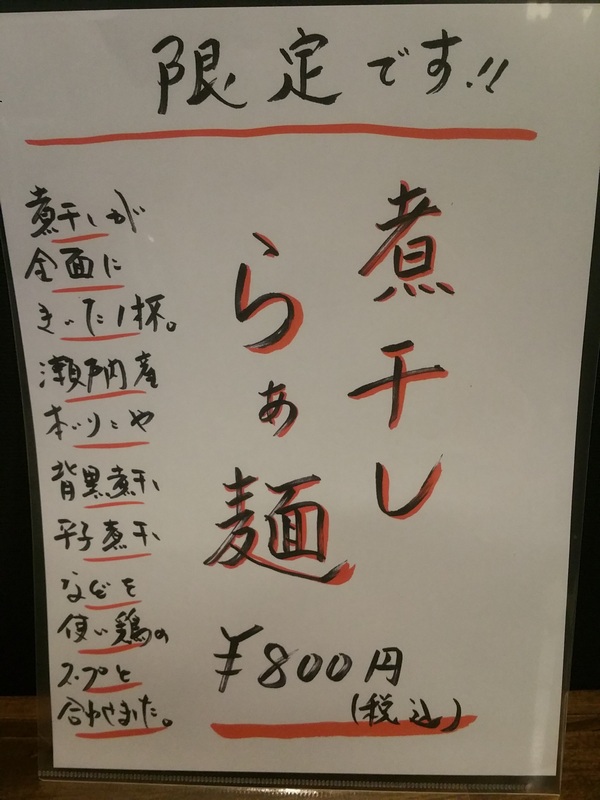 限定です!!
煮干し
らぁ麺
¥800円
(税込)
煮干しが
全面に
きいた1杯。
瀬戸内産
本いりこや
背黒煮干し
平子煮干し
などを
使い鶏の
スープと
合わせました。